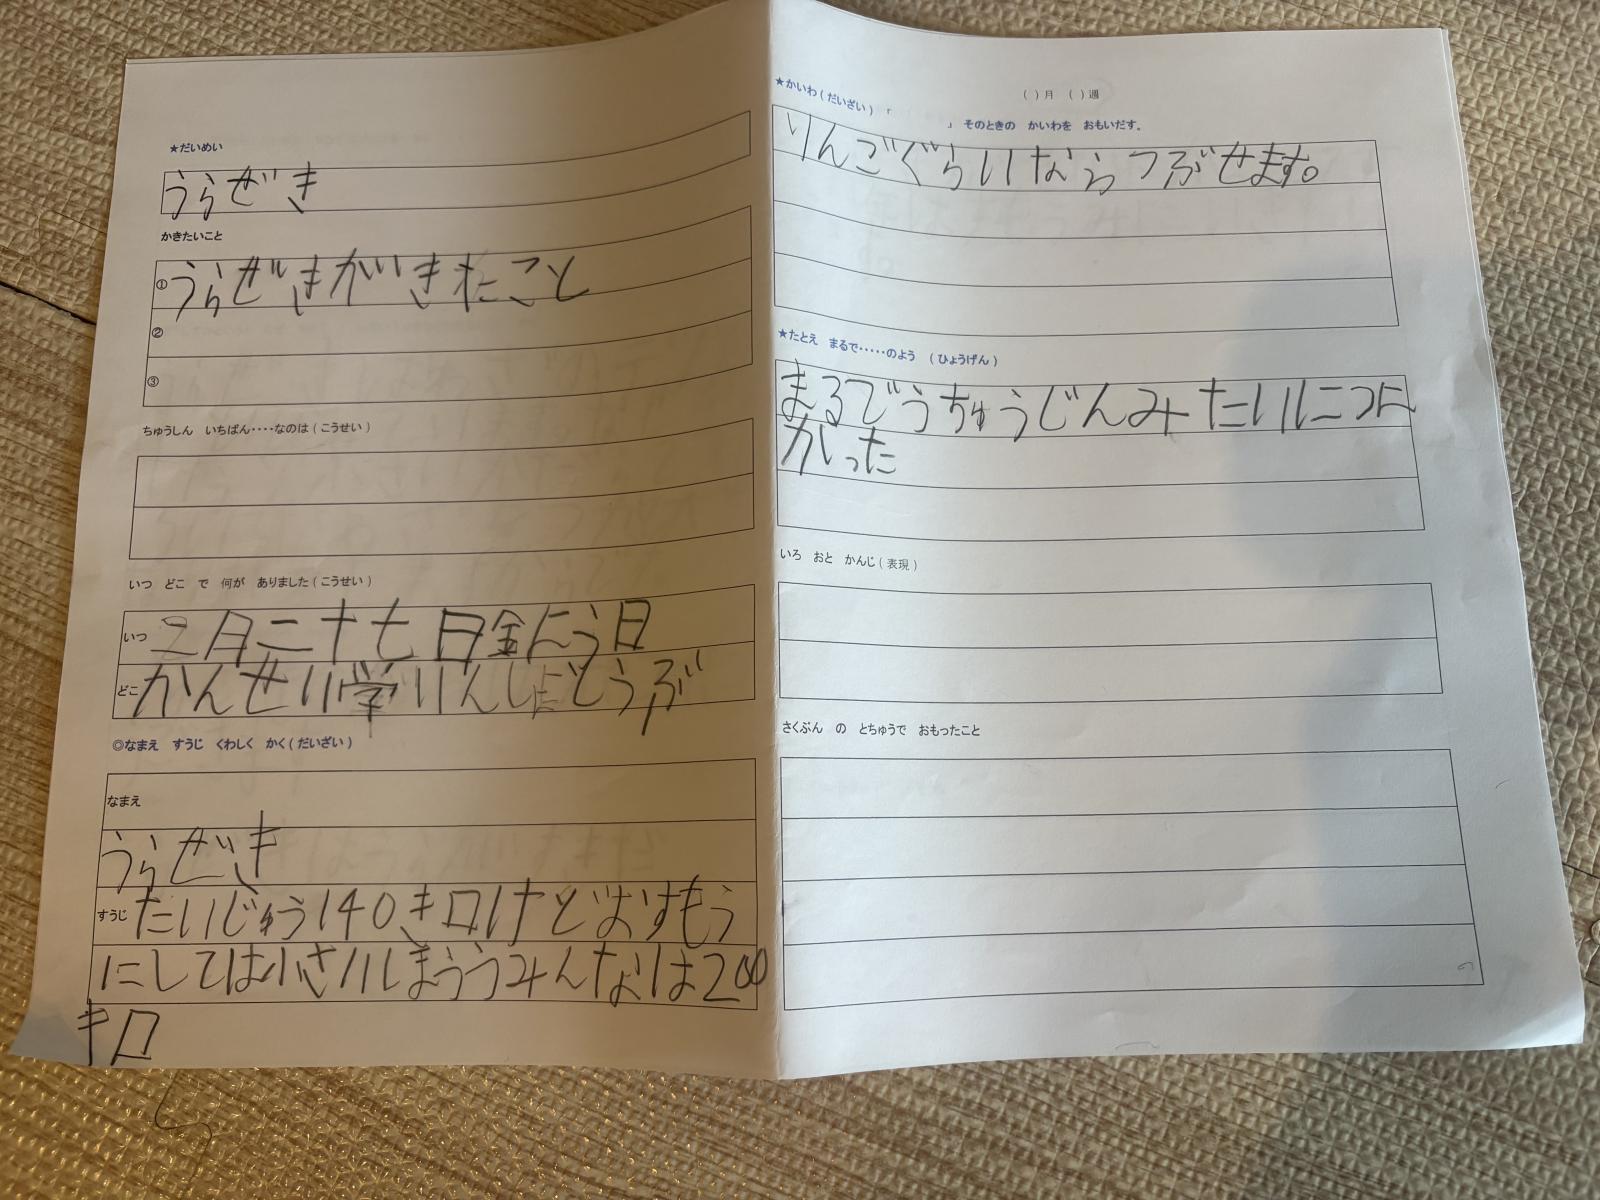 ★だいめい
うらぜき
かきたいこと
① うらぜきがいきたこと
②
③
ちゅうしん いちばん・・・・なのは(こうせい)
いつ どこ で 何が ありました(こうせい)
いつ 二月二十七日金にう日
どこ かんせい学いんしょとうぶ
◎なまえ すうじ くわしく かく(だいざい)
なまえ
うらぜき
すうじ たいじゅう140キロけどおすもう
にしては小さいしまううみんなは200
キロ
( )月 ( )週
★かいわ(だいざい) 「 」 そのときの かいわを おもいだす。
りんごぐらいならつぶせます。
★たとえ まるで・・・・・のよう (ひょうげん)
まるでうちゅうじんみたいにつに
かった
いろ おと かんじ(表現)
さくぶん の とちゅうで おもったこと